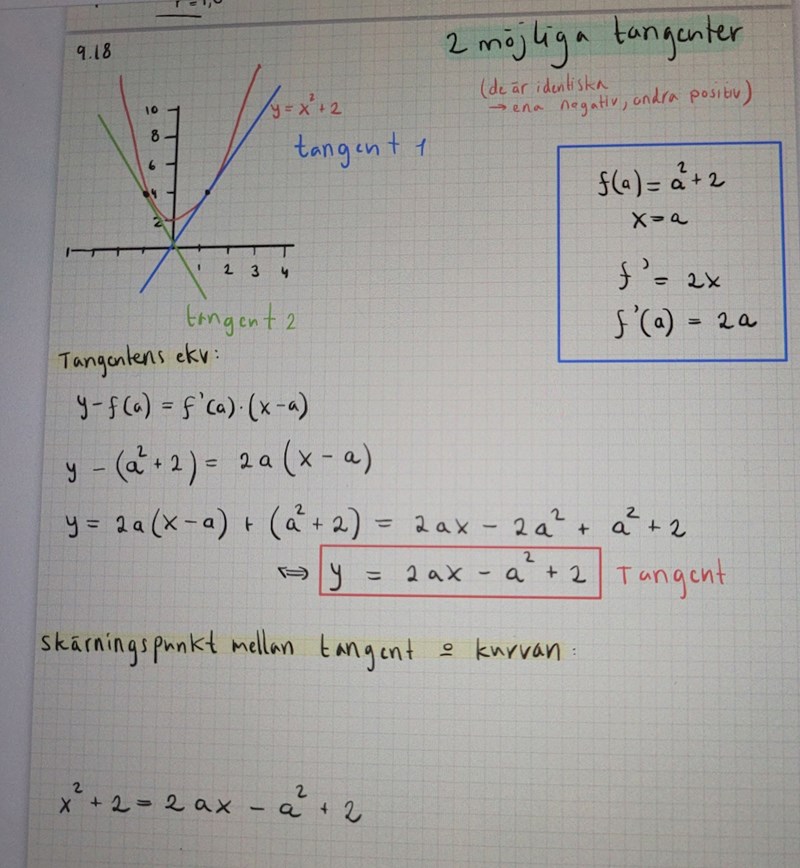 9.18
2 möjliga tangenter
(de är identiska
→ ena negativ, andra positiv)
y = x² + 2
tangent 1
10
8
6
4
2
1 2 3 4
tangent 2
f(a) = a² + 2
x = a
f' = 2x
f'(a) = 2a
Tangentens ekv:
y - f(a) = f'(a)·(x-a)
y - (a² + 2) = 2a(x - a)
y = 2a(x-a) + (a² + 2) = 2ax - 2a² + a² + 2
⟺ y = 2ax - a² + 2 Tangent
skärningspunkt mellan tangent o kurvan:
x² + 2 = 2ax - a² + 2